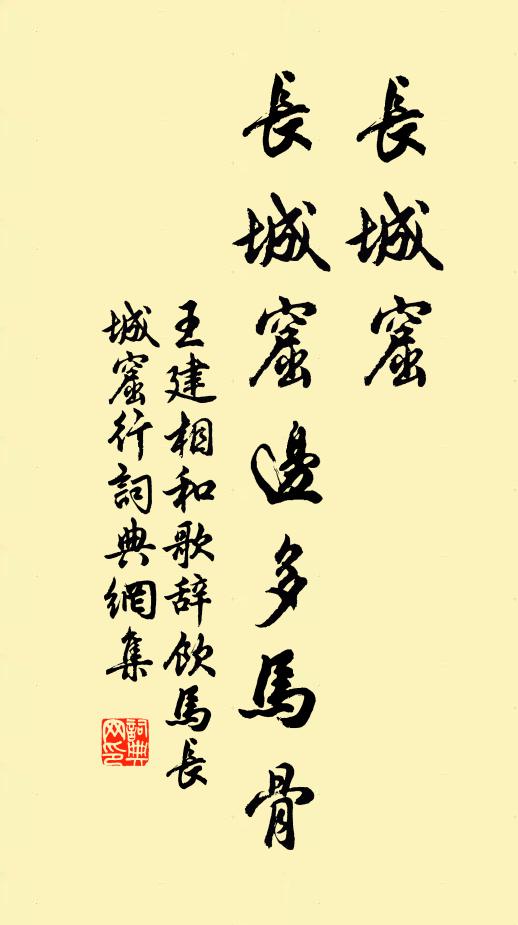 長城窟
長城窟邊多馬骨
王建相和歌辞饮馬長
城窟行詞典網集
詞典
网印